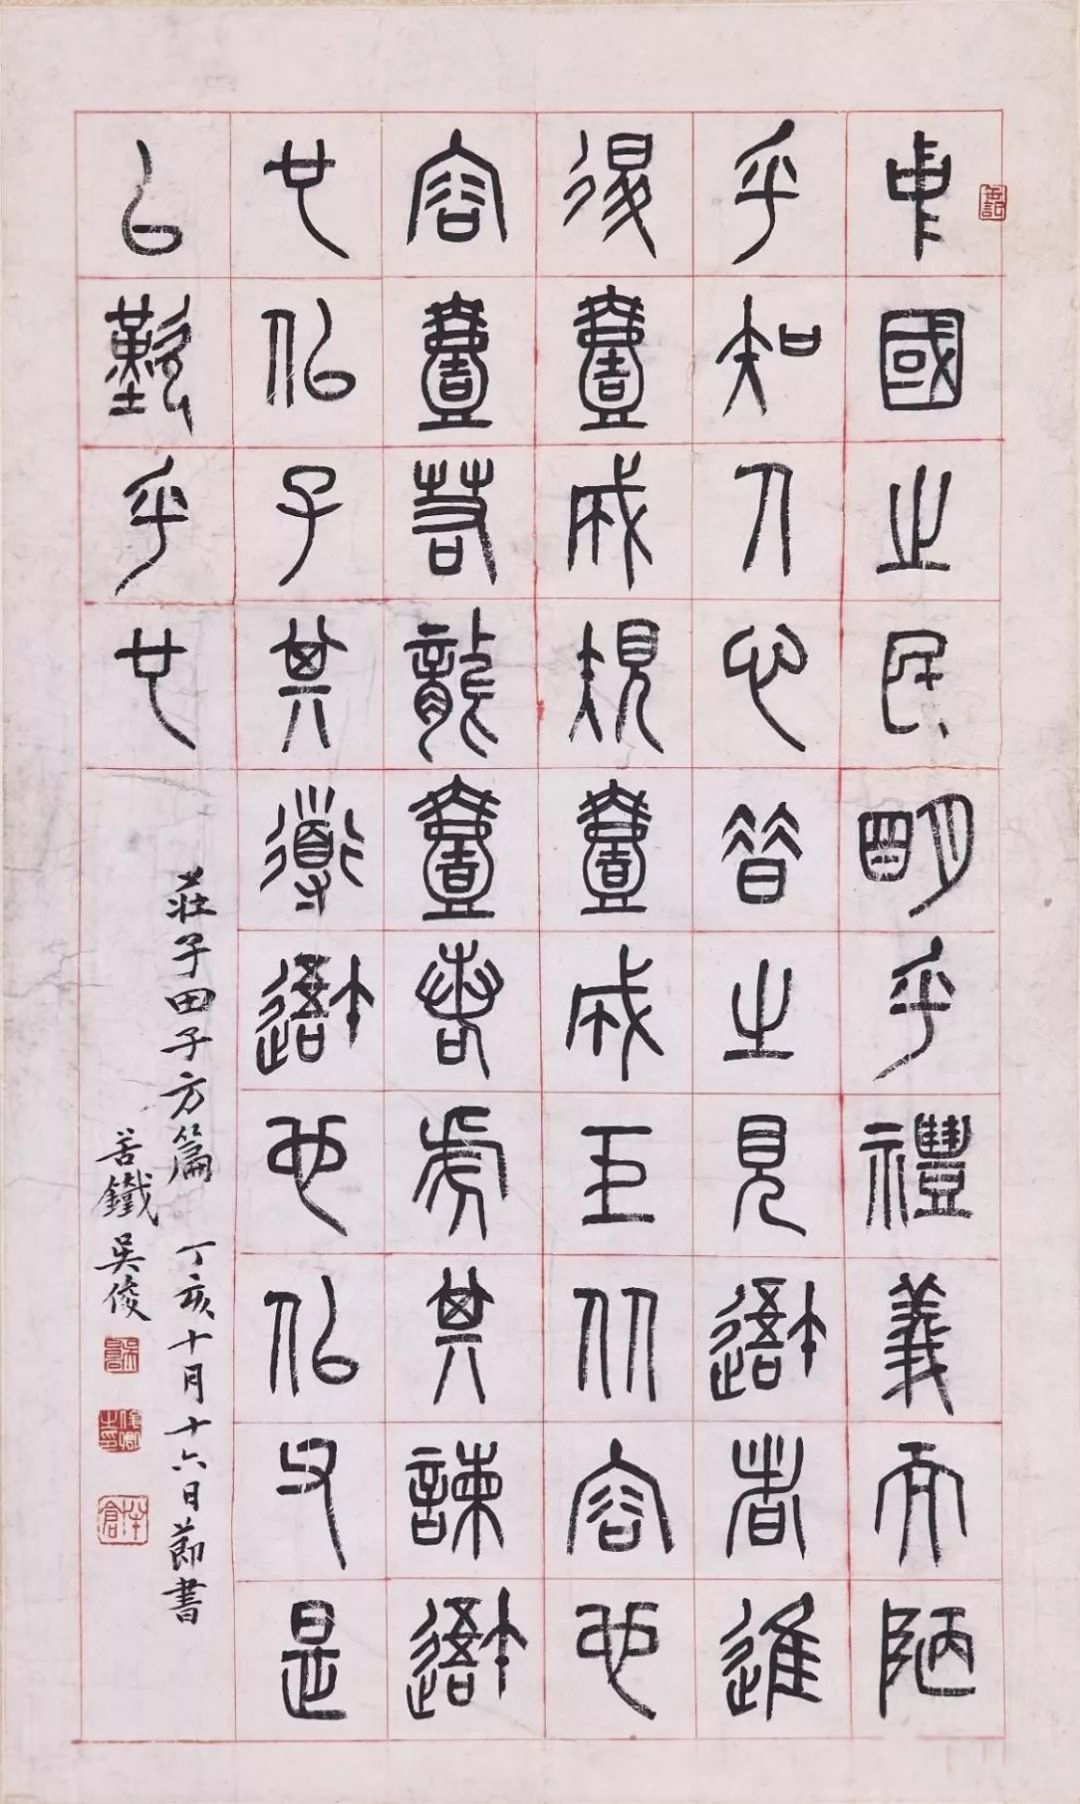 中國之民明乎禮義而陋
乎知人心昔之見吾者進
退壹成規壹成巨从容也
容壹若龍壹若虎其諫吾
也似子其導吾也似父是
以歎乎也
莊子田子方篇 丁亥十月十六日節書
苦鐵吳俊